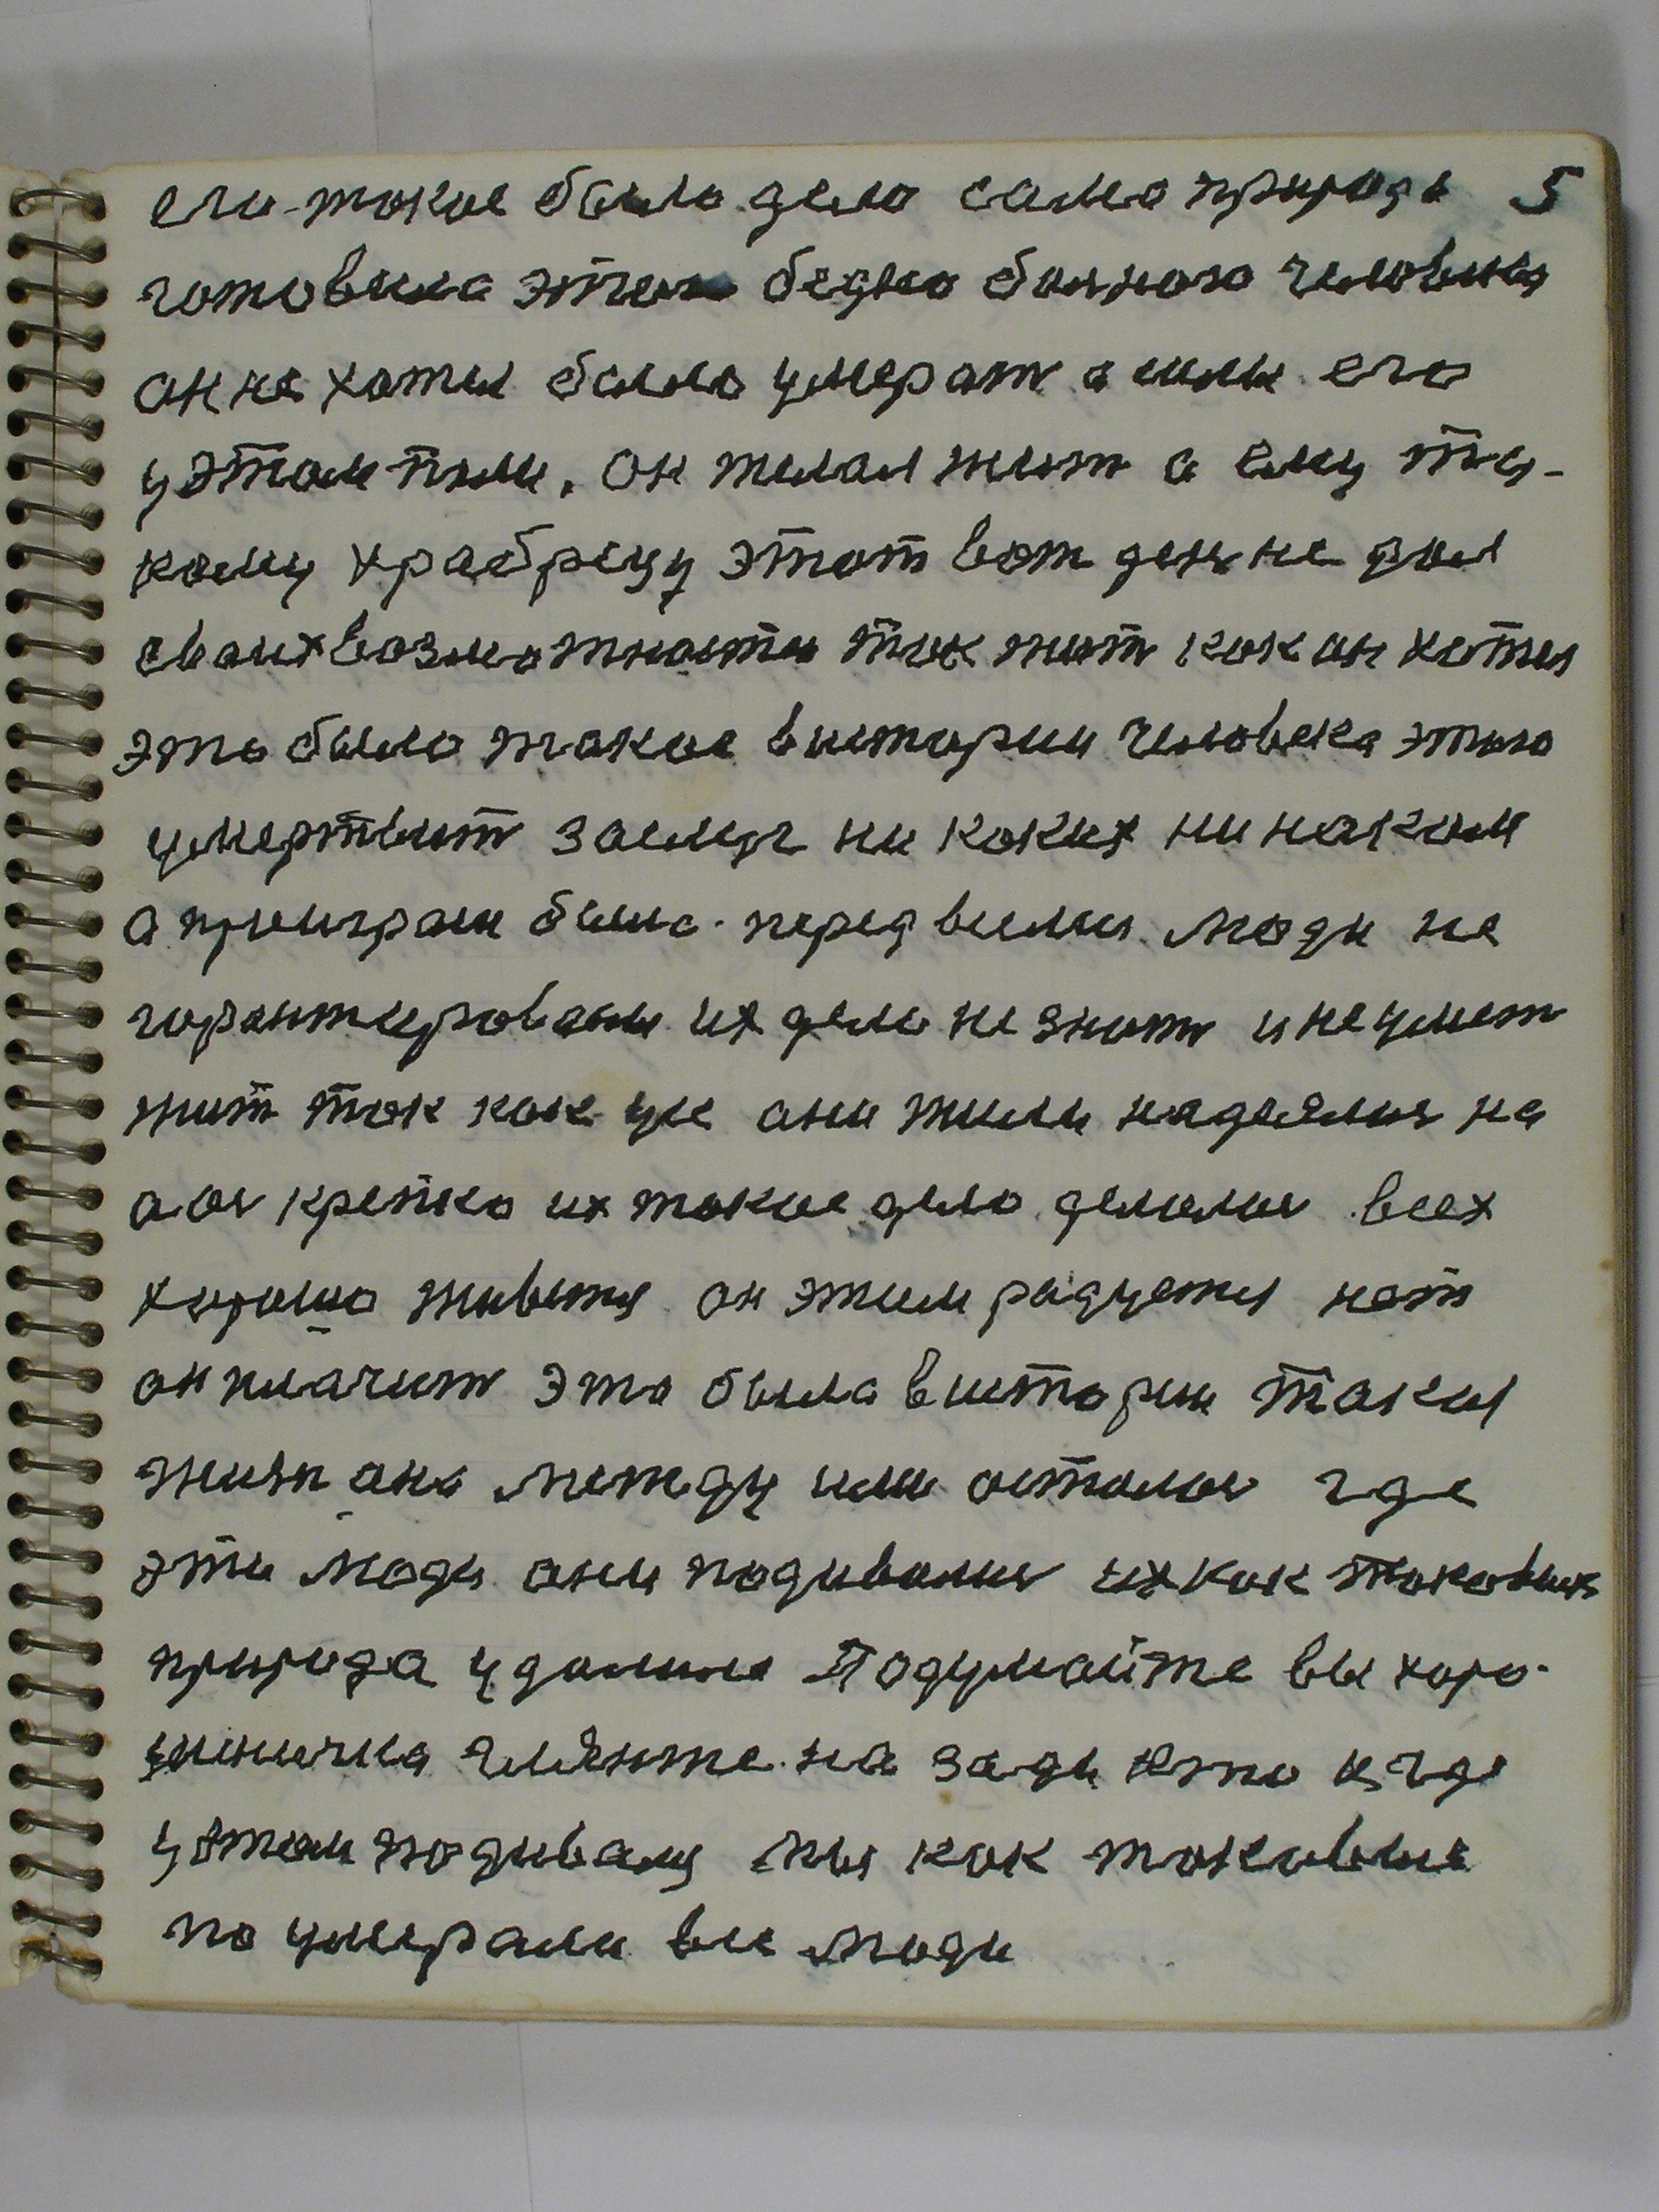 его такое было дело сама природа 5
готовила этого бедно больного человека
он не хотел было умерат а или его
у этом пили. он желал жит а ему та-
кому храбрецу этот вот день не дал
своих возможности так жит как он хотел
это было такое в истории человека этого
умертвит заемду ни каких ни наком
а проиграш была перед всеми люди не
горантировали их дело не знают и не умеют
жит так как уже они жили надеялися на
авос крепко их такое дело делалос всех
хорошо живется он этим радуется нет
он плачит это была в истории такая
жизн она между ими осталос где
эти люди они подивалис их как таковых
природа удалила Подумайте вы хоро-
шинечка гляните на зади кто и где
у этом подивалц мы как таковые
по умерали все люди